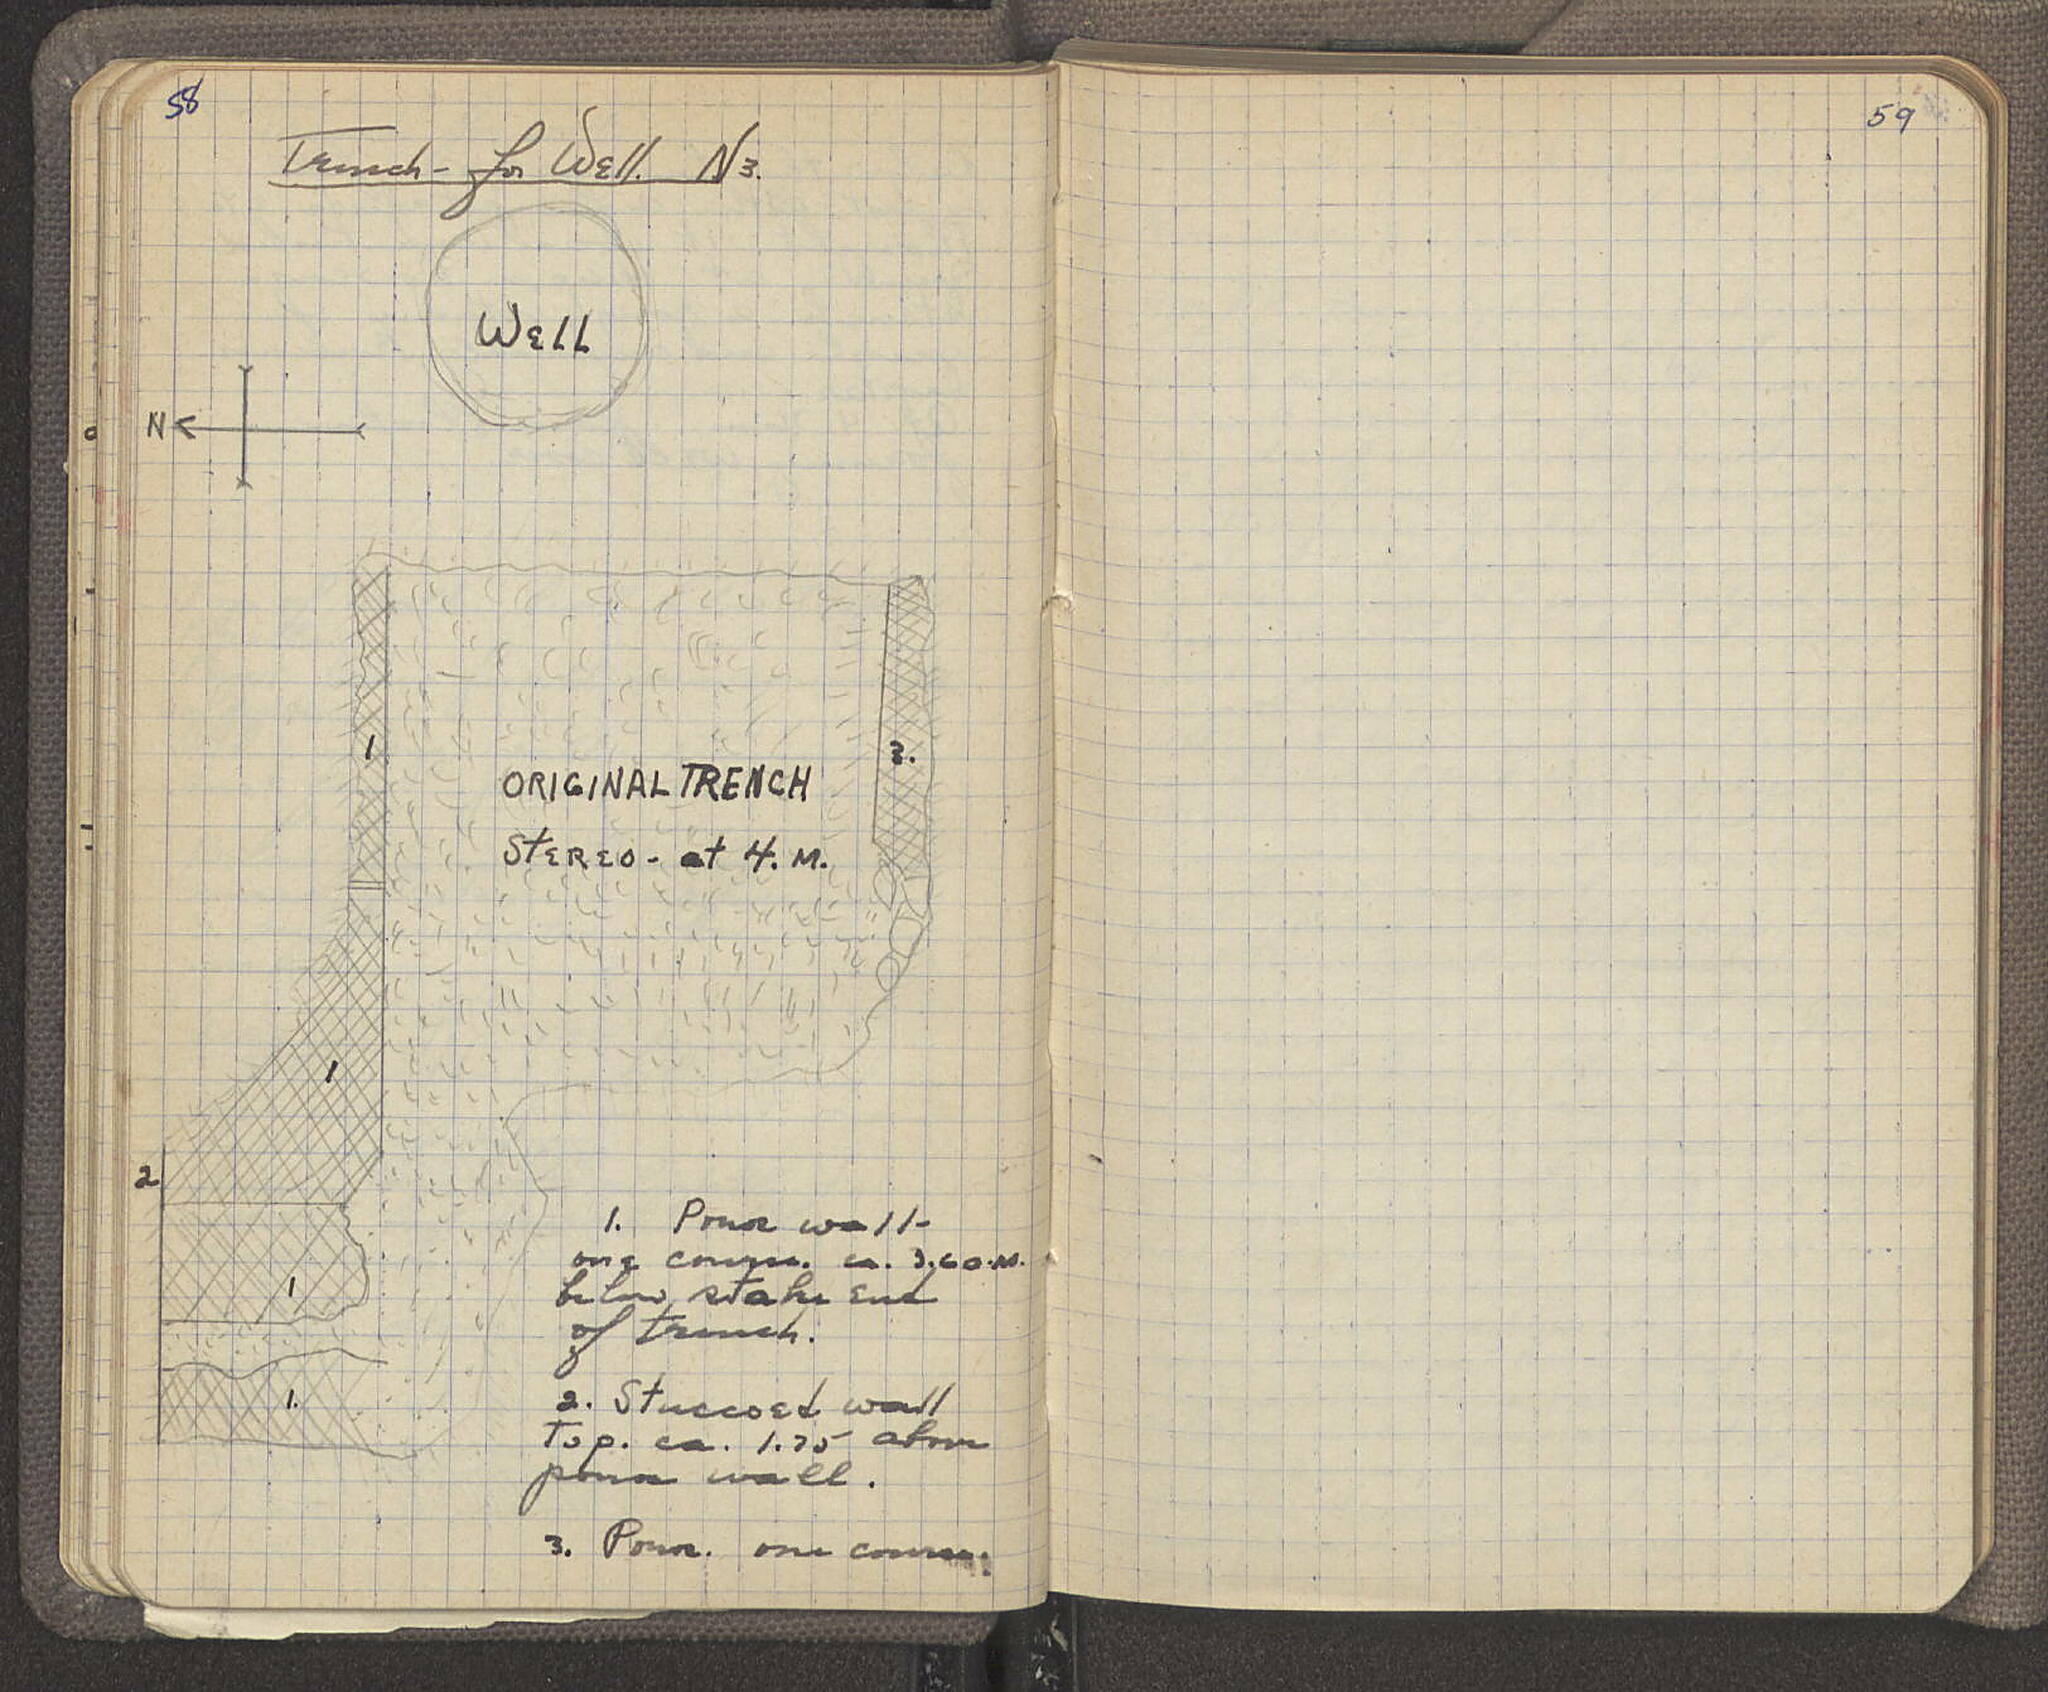 58
Trench - for Well. N3.
Well
N
1
3.
ORIGINAL TRENCH
STEREO - at 4. M.
1
2
1
1.
1. Poros wall -
one course. ca. 3.60. M.
below stake End
of trench.
2. Stuccoed wall
Top. ca. 1.75 above
poros wall.
3. Poros. one course.
59